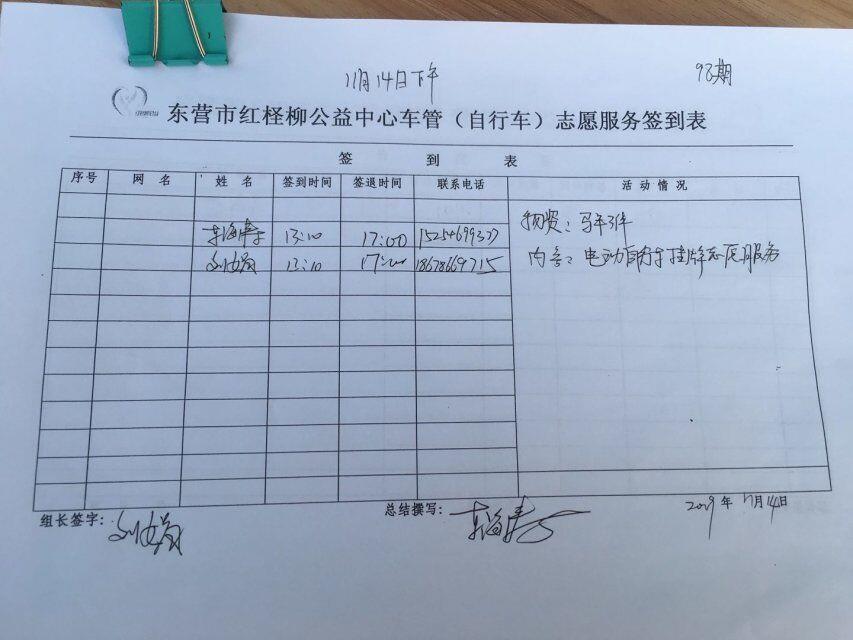 11月14日下午
98期
东营市红柽柳公益中心车管（自行车）志愿服务签到表
签 到 表
序号 网 名 姓 名 签到时间 签退时间 联系电话 活 动 情 况
13:10 17:00
13:10 17:00 18678669715
内容：电动自行车挂牌志愿服务
组长签字：
总结撰写：
2019年11月14日